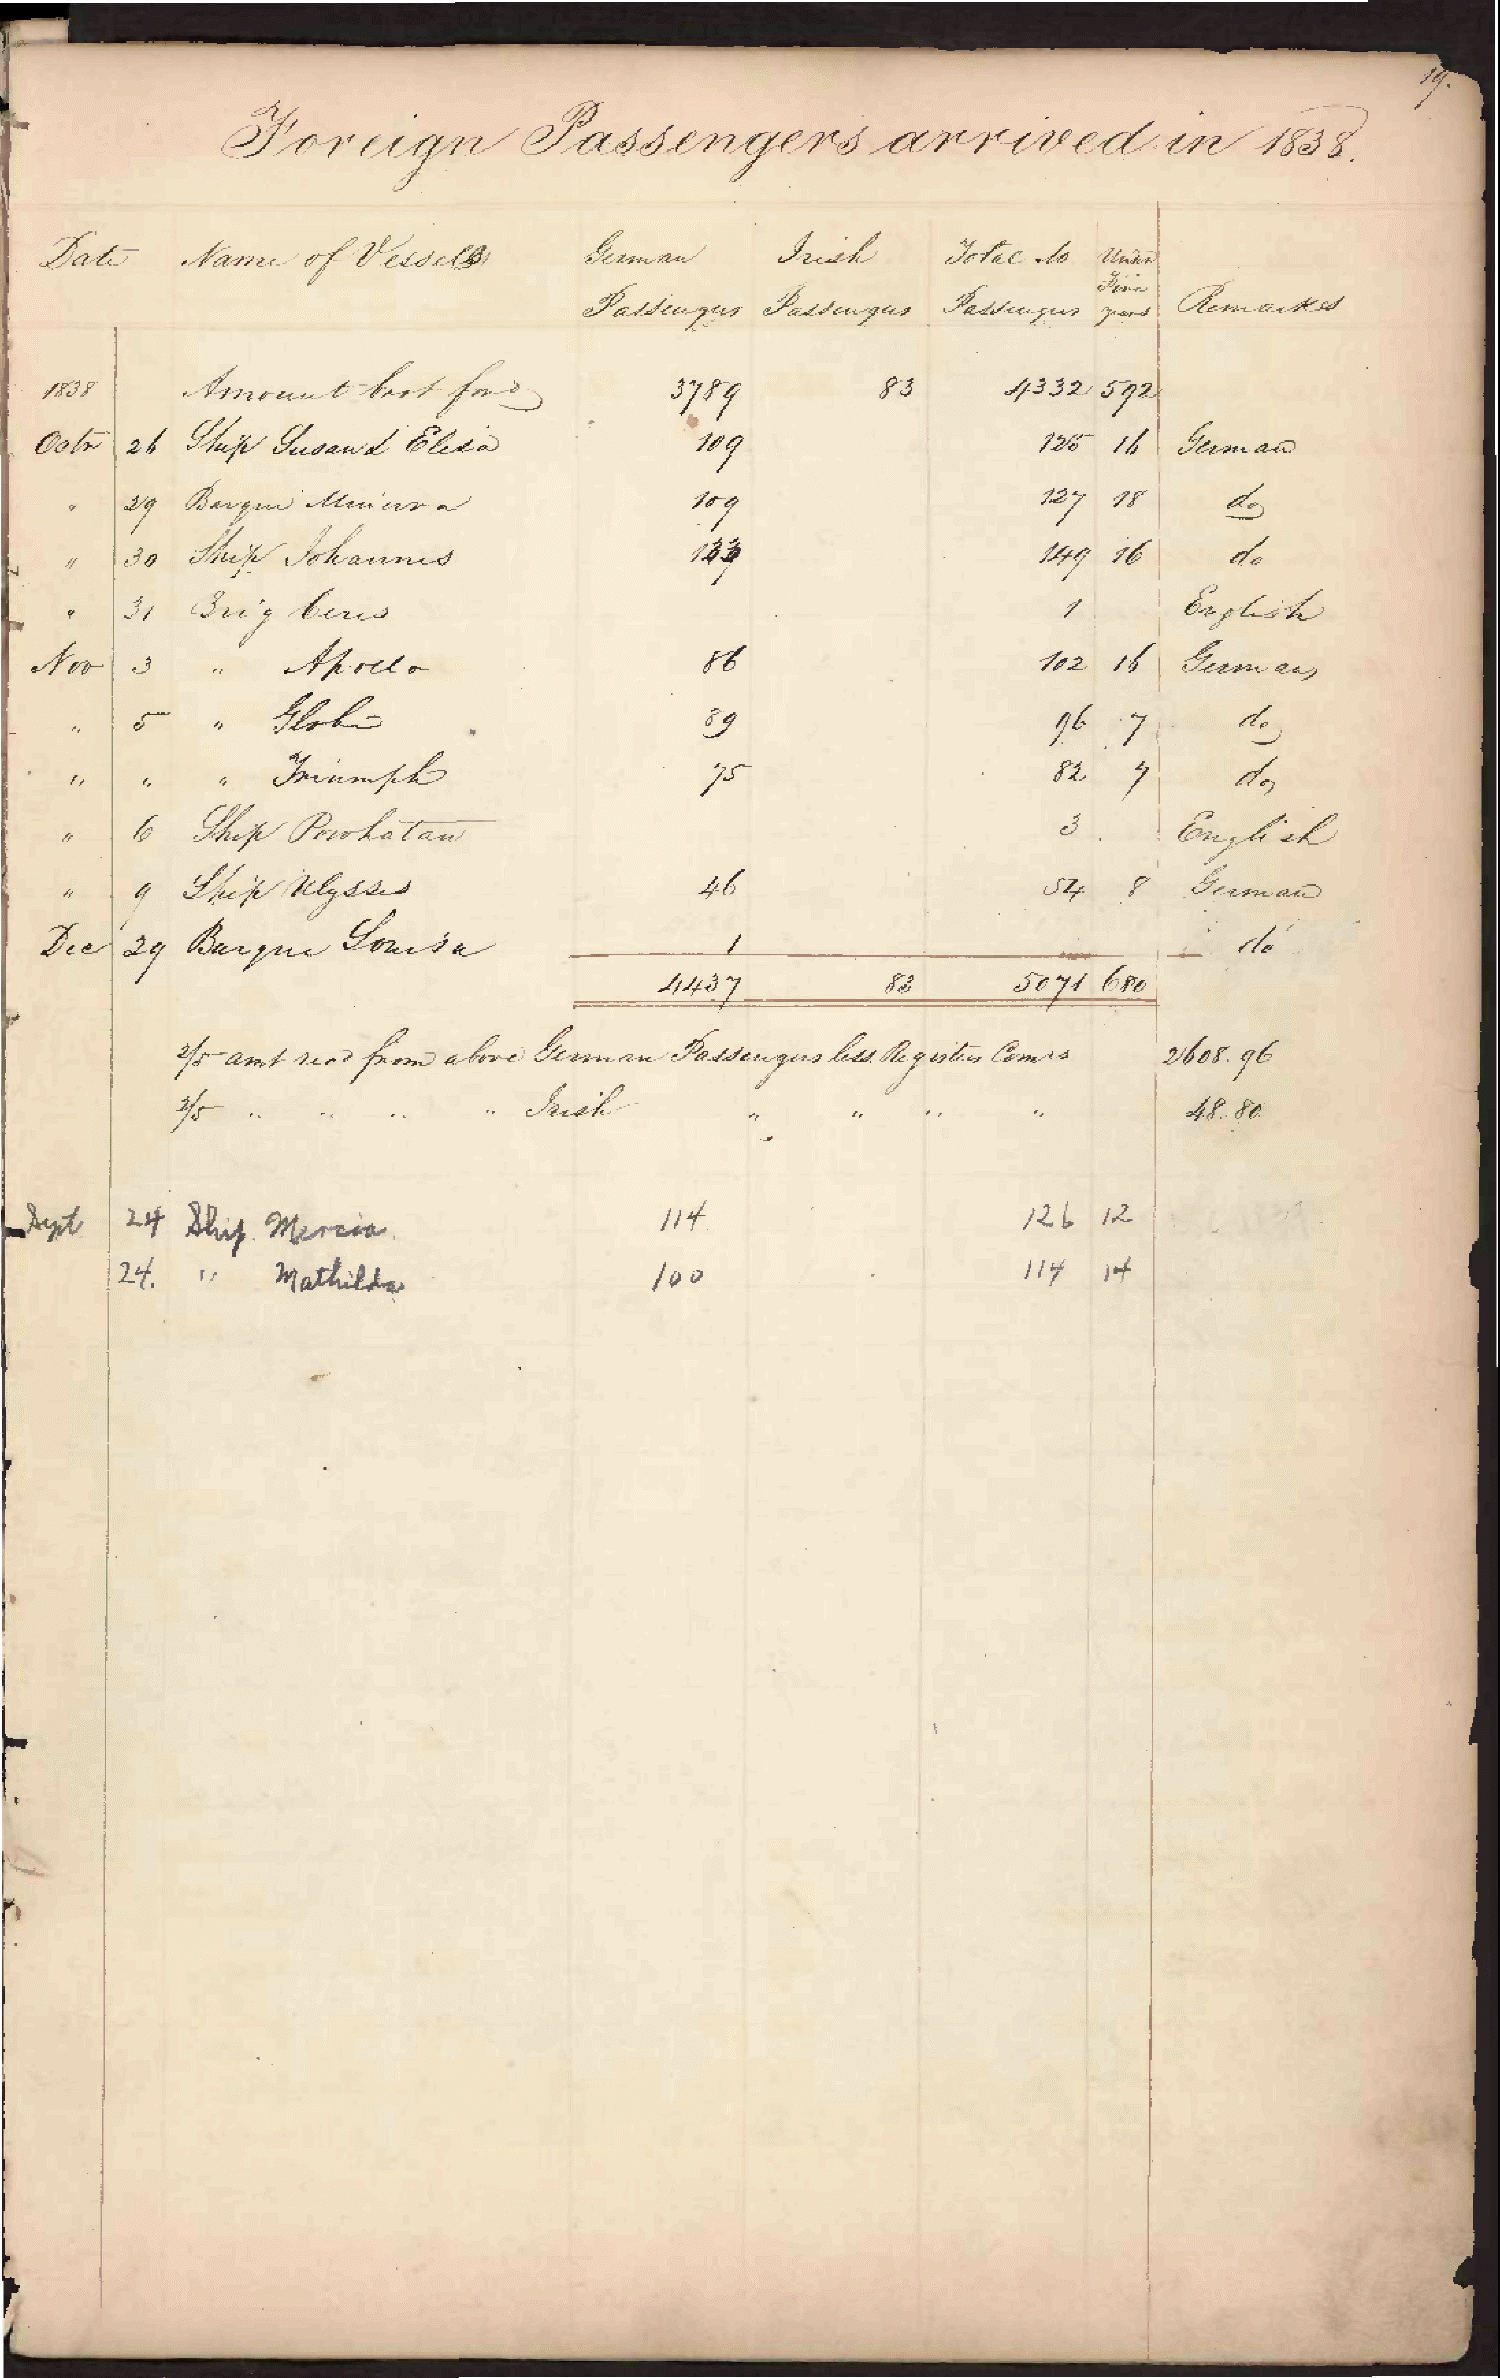 19.
Foreign Passengers arrived in 1838.
Date Name of Vessels German Irish Total No Under
Five
Passengers Passengers Passengers years Remarkes
1838 Amount brot ford 3789 83 4332 592
Octr 26 Ship Susan & Eliza 109 125 16 German
" 29 Barque Minerva 109 127 18 do
" 30 Ship Johannes 133 149 16 do
" 31 Brig Ceres 1 English
Nov 3 " Apollo 86 102 16 Germans
" 5 " Globe 89 96 7 do
" " " Triumph 75 82 7 do
" 6 Ship Powhatan 3 English
" 9 Ship Ulysses 46 54 8 German
Dec 29 Barque Louisa 1 do
4437 83 5071 680
2/5 amt recd from above German Passengers less Registers Coms 2608.96
2/5 " " " " Irish " " " " 48.80
Sept 24 Ship. Mercia. 114 126 12
24. " Mathilda 100 114 14